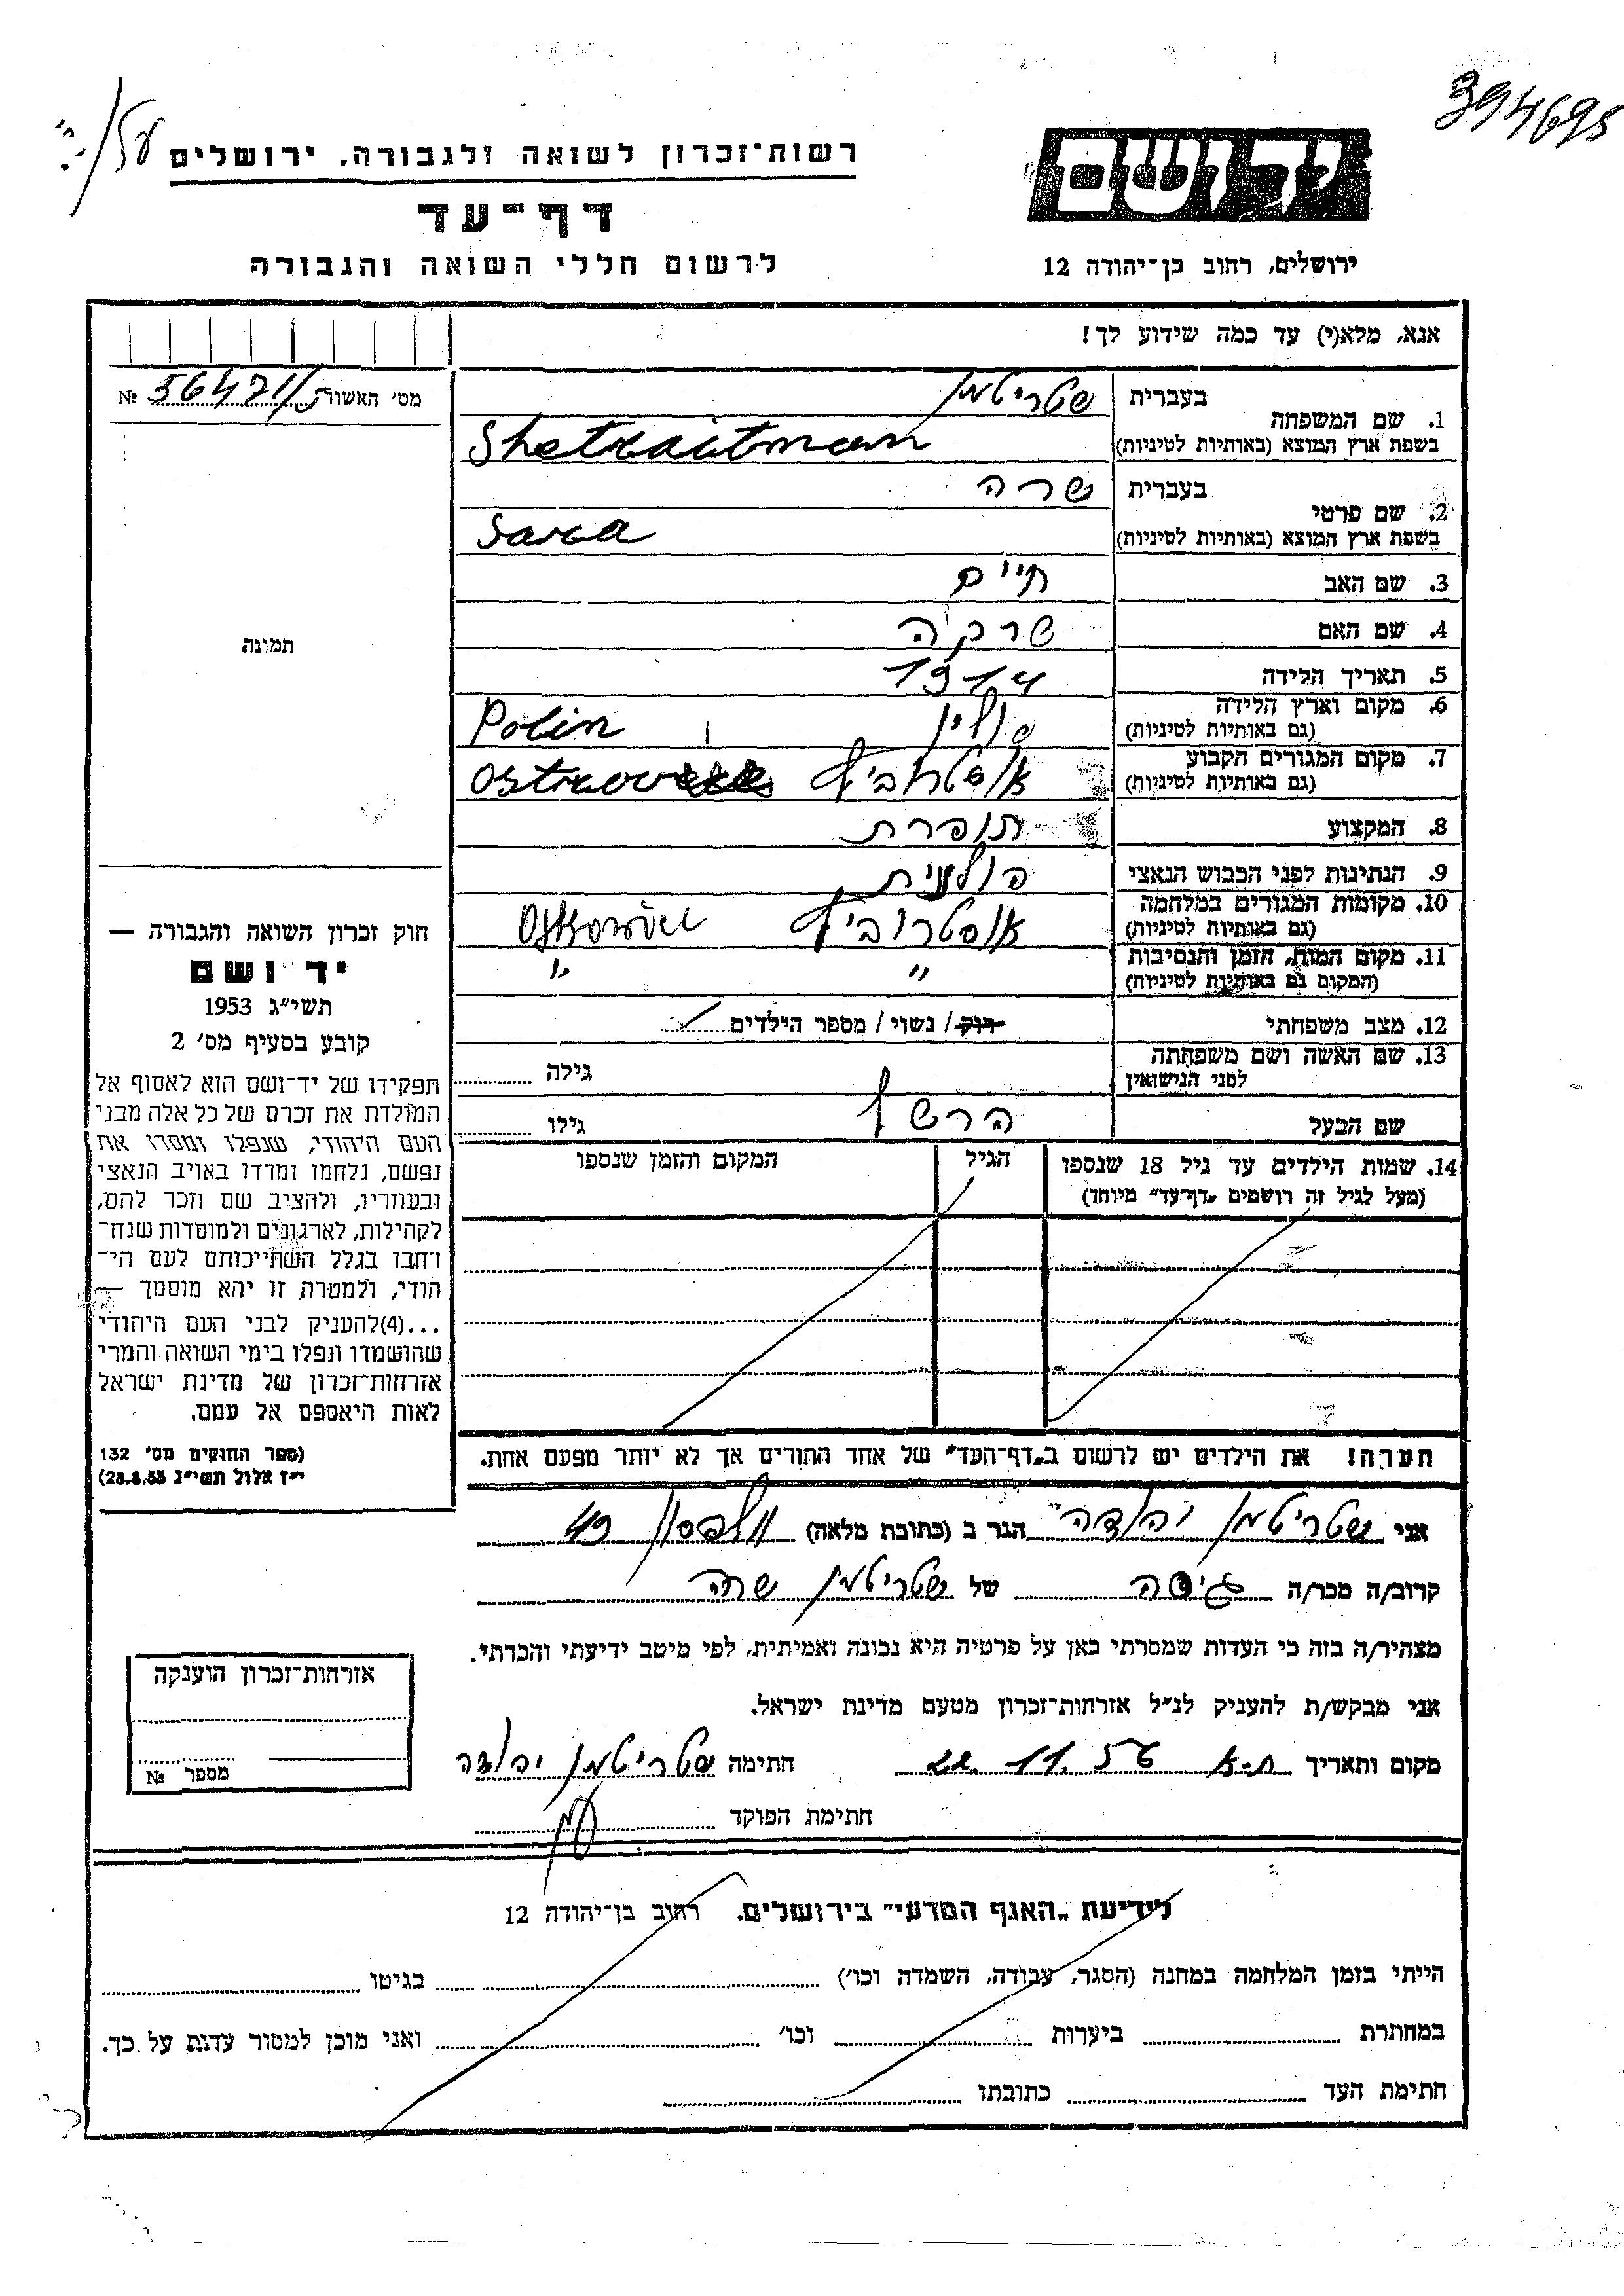 394698
רשות־זכרון לשואה ולגבורה, ירושלים
יד ושם
דף־עד
לרשום חללי השואה והגבורה
ירושלים, רחוב בן־יהודה 12
אנא, מלא(י) עד כמה שידוע לך!
מס' האשור № 56471/
1. שם המשפחה
בעברית שטריטמן
בשפת ארץ המוצא (באותיות לטיניות) Shetraitman
2. שם פרטי
בעברית שרה
בשפת ארץ המוצא (באותיות לטיניות) Sara
3. שם האב חיים
4. שם האם שרקה
תמונה
5. תאריך הלידה 1914
6. מקום וארץ הלידה (גם באותיות לטיניות) פולין Polin
7. מקום המגורים הקבוע (גם באותיות לטיניות) אוסטרוביץ
8. המקצוע תופרת
9. הנתינות לפני הכבוש הנאצי פולנית
10. מקומות המגורים במלחמה (גם באותיות לטיניות) אוסטרוביץ
11. מקום המות, הזמן והנסיבות (המקום גם באותיות לטיניות) " "
12. מצב משפחתי רווק / נשוי / מספר הילדים
13. שם האשה ושם משפחתה לפני הנישואין גילה
שם הבעל הרשל גילו
14. שמות הילדים עד גיל 18 שנספו
(מעל לגיל זה רושמים „דף־עד" מיוחד)
הגיל
המקום והזמן שנספו
חוק זכרון השואה והגבורה —
יד ושם
תשי"ג 1953
קובע בסעיף מס' 2
תפקידו של יד־ושם הוא לאסוף אל
המולדת את זכרם של כל אלה מבני
העם היהודי, שנפלו ומסרו את
נפשם, נלחמו ומרדו באויב הנאצי
ובעוזריו, ולהציב שם וזכר להם,
לקהילות, לארגונים ולמוסדות שנח־
רחבו בגלל השתייכותם לעם הי־
הודי, ולמטרה זו יהא מוסמך —
...(4)להעניק לבני העם היהודי
שהושמדו ונפלו בימי השואה והמרי
אזרחות־זכרון של מדינת ישראל
לאות היאספם אל עמם.
(ספר החוקים מס' 132
י"ז אלול תשי"ג 28.8.53)
הערה! את הילדים יש לרשום ב„דף־העד" של אחד ההורים אך לא יותר מפעם אחת.
אני שטריטמן יהודה הגר ב (כתובת מלאה) וולפסון 49
קרוב/ה מכר/ה גיסה של שטריטמן שרה
מצהיר/ה בזה כי העדות שמסרתי כאן על פרטיה היא נכונה ואמיתית, לפי מיטב ידיעתי והכרתי.
אני מבקש/ת להעניק לנ"ל אזרחות־זכרון מטעם מדינת ישראל.
מקום ותאריך ת-א 22.11.56 חתימה שטריטמן יהודה
חתימת הפוקד
אזרחות־זכרון הוענקה
מספר №
לידיעת „האגף המדעי" בירושלים. רחוב בן־יהודה 12
הייתי בזמן המלחמה במחנה (הסגר, עבודה, השמדה וכו') בגיטו
במחתרת ביערות וכו' ואני מוכן למסור עדות על כך.
חתימת העד כתובתו